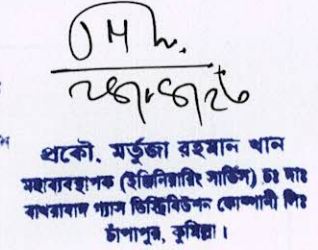 প্রকৌ. মর্তুজা রহমান খান
মহাব্যবস্থাপক (ইঞ্জিনিয়ারিং সার্ভিস) চঃ দাঃ
বাখরাবাদ গ্যাস ডিস্ট্রিবিউশন কোম্পানী লিঃ
চাঁপাপুর, কুমিল্লা।